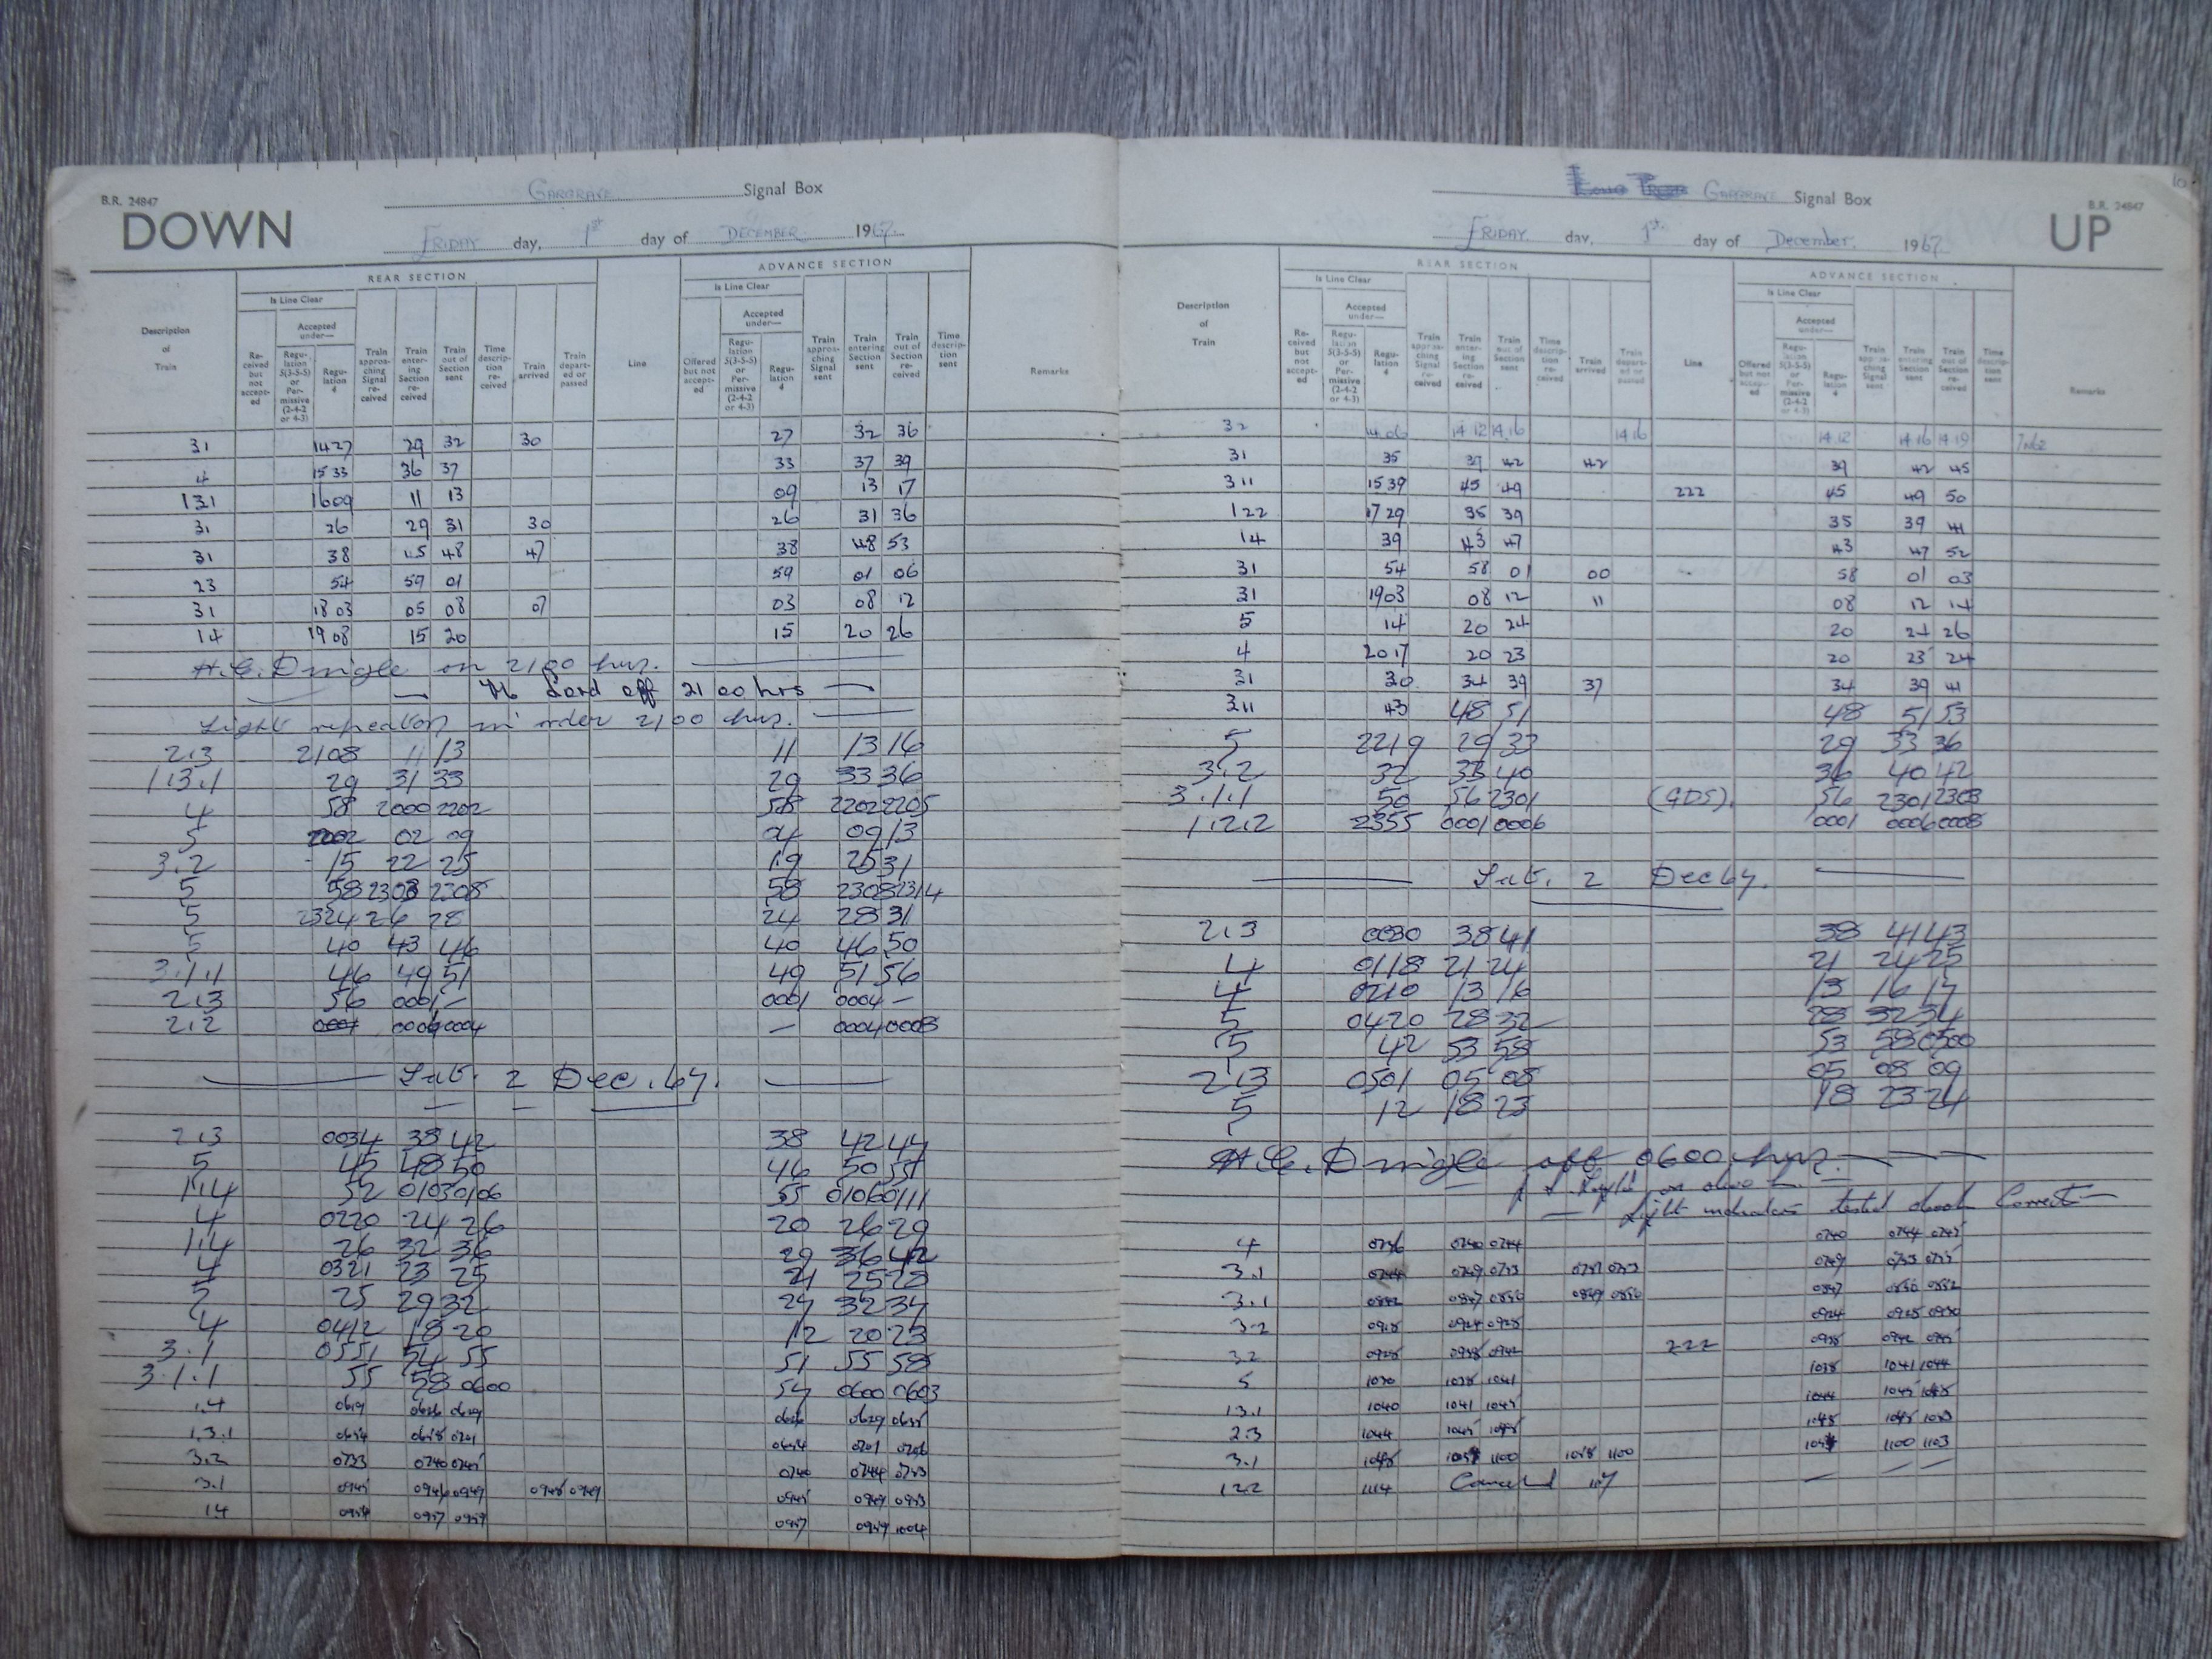 B.R. 24847
DOWN
GARGRAVE Signal Box
FRIDAY day, 1st day of DECEMBER 1967
REAR SECTION
ADVANCE SECTION
Is Line Clear
Is Line Clear
Description of Train
Received but not accepted
Accepted under—
Regulation 5(3-5-5) or Permissive (2-4-2 or 4-3)
Regulation 4
Train approaching Signal received
Train entering Section received
Train out of Section sent
Time description received
Train arrived
Train depart-ed or passed
Line
Offered but not accepted
Accepted under—
Regulation 5(3-5-5) or Permissive (2-4-2 or 4-3)
Regulation 4
Train approaching Signal sent
Train entering Section sent
Train out of Section received
Time description sent
Remarks
31 1427 29 32 30 27 32 36
4 1533 36 37 33 37 39
131 1609 11 13 09 13 17
31 26 29 31 30 26 31 36
31 38 45 48 47 38 48 53
23 54 59 01 59 01 06
31 1803 05 08 07 03 08 12
14 1908 15 20 15 20 26
on 2100 hrs.
off 2100 hrs
Light repeaters in order 2100 hrs.
2.3 2108 11 13 11 13 16
1.3.1 29 31 33 29 33 36
4 58 2000 2202 58 2202 2205
5 2202 02 09 04 09 13
3.2 15 22 25 19 25 31
5 58 2303 2308 58 2308 2314
5 2324 26 28 24 28 31
5 40 43 46 40 46 50
3.1.1 46 49 51 49 51 56
2.3 56 0001 — 0001 0004 —
2.2 0001 0004 — 0004 0008
Sat. 2 Dec. 67.
2.3 0034 38 42 38 42 44
5 45 48 50 46 50
1.4 52 0103 0106 55 0106 0111
4 0220 24 26 20 26 29
1.4 26 32 36 29 36 42
4 0321 23 25 21 25 28
5 25 29 32 27 32 34
4 0412 18 20 12 20 23
3.1 0551 54 55 51 55 58
3.1.1 55 58 0600 57 0600 0603
1.4 0619 0626 0629 0626 0629 0635
1.3.1 0654 0658 0701 0654 0701 0706
3.2 0733 0740 0745 0740 0744
3.1 0945 0946 0949 0948 0949 0945 0949 0953
14 0954 0957 0959 0957 0959 1004
B.R. 24847
UP
GARGRAVE Signal Box
FRIDAY day, 1st day of December 1967
REAR SECTION
ADVANCE SECTION
Is Line Clear
Is Line Clear
Description of Train
Received but not accepted
Accepted under—
Regulation 5(3-5-5) or Permissive (2-4-2 or 4-3)
Regulation 4
Train approaching Signal received
Train entering Section received
Train out of Section sent
Time description received
Train arrived
Train departed or passed
Line
Offered but not accepted
Accepted under—
Regulation 5(3-5-5) or Permissive (2-4-2 or 4-3)
Regulation 4
Train approaching Signal sent
Train entering Section sent
Train out of Section received
Time description sent
Remarks
32 14 06 14 12 14 16 14 16 14 12 14 16 14 19
31 35 39 42 42 39 42 45
311 1539 45 49 222 45 49 50
122 1729 35 39 35 39 41
14 39 43 47 43 47 52
31 54 58 01 00 58 01 03
31 1903 08 12 11 08 12 14
5 14 20 24 20 24 26
4 2017 20 23 20 23 24
31 30 34 39 37 34 39 41
311 43 48 51 48 51 53
5 2219 29 33 29 33 36
3.2 32 40 36 40 42
3.1.1 50 56 2301 (GDS). 56 2301 2303
1.2.2 2355 0001 0006 0001 0006 0008
Sat. 2 Dec 67.
2.3 0030 38 41 38 41 43
4 0118 21 24 21 24 25
4 0210 13 16 13 16 17
5 0420 28 32 28 32 34
5 42 53 58 53 58 0500
2.3 0501 05 08 05 08 09
5 12 18 23 18 23 24
off 0600 hrs.
tested Correct
4 0736 0740 0744 0740 0744 0745
3.1 0744 0749 0753 0751 0753 0749 0753 0755
3.1 0842 0847 0850 0849 0850 0847 0850 0852
3.2 0918 0924 0928 0924 0928 0930
3.2 0928 0938 0942 222 0938 0942 0945
5 1030 1038 1041 1038 1041 1044
13.1 1040 1041 1045 1044 1045 1048
2.3 1044 1045 1048
3.1 1048 1100 1058 1100 1100 1103
122 1114 Cancelled — — —